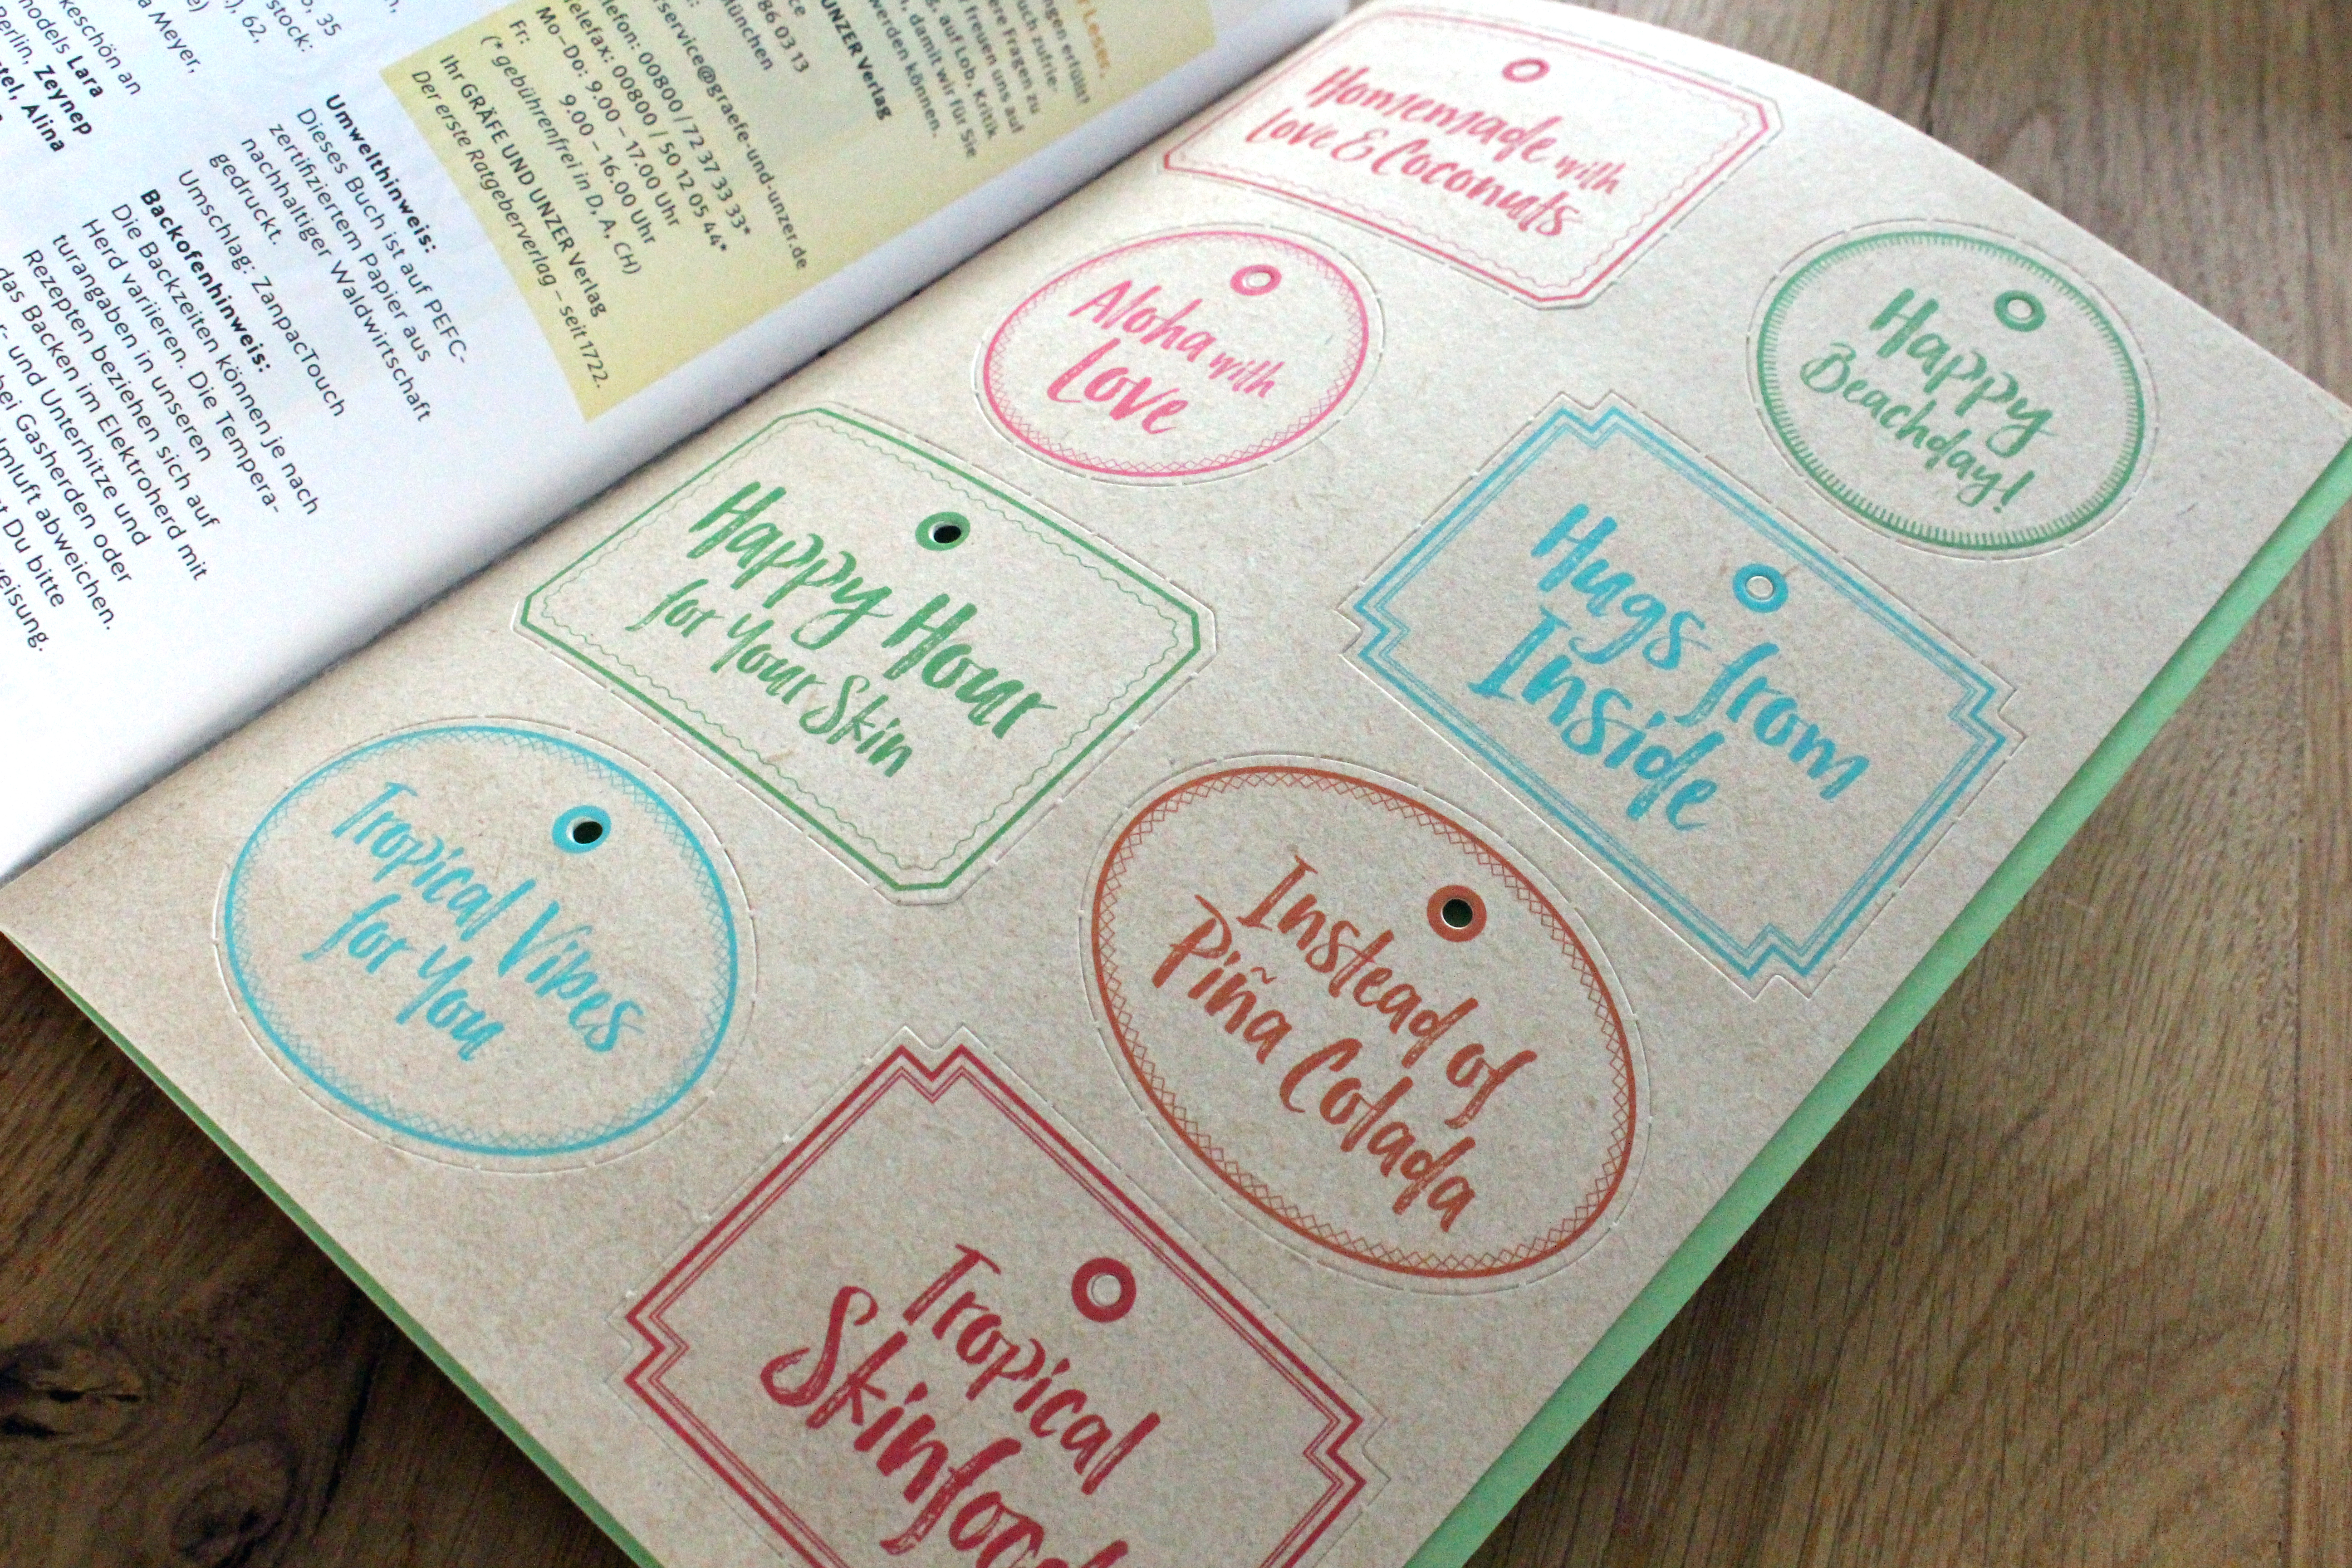 , 35
stock:
.), 62,
keschön an
a Meyer,
models Lara
Berlin, Zeynep
Alina
Umwelthinweis:
Dieses Buch ist auf PEFC-
zertifiziertem Papier aus
nachhaltiger Waldwirtschaft
gedruckt.
Umschlag: ZanpacTouch
Backofenhinweis:
Die Backzeiten können je nach
Herd variieren. Die Tempera-
turangaben in unseren
Rezepten beziehen sich auf
das Backen im Elektroherd mit
r- und Unterhitze und
bei Gasherden oder
mluft abweichen.
t Du bitte
eisung.
Leser,
ngen erfüllt?
uch zufrie-
ere Fragen zu
freuen uns auf
g, auf Lob, Kritik
, damit wir für Sie
werden können.
UNZER Verlag
ce
86 03 13
München
rservice@graefe-und-unzer.de
lefon: 00800 / 72 37 33 33*
elefax: 00800 / 50 12 05 44*
Mo–Do: 9.00 – 17.00 Uhr
Fr: 9.00 – 16.00 Uhr
(* gebührenfrei in D, A, CH)
Ihr GRÄFE UND UNZER Verlag
Der erste Ratgeberverlag – seit 1722.
Homemade with
Love & Coconuts
Aloha with
Love
Happy
Beachday!
Happy Hour
for Your Skin
Hugs from
Inside
Tropical Vibes
for You
Instead of
Piña Colada
Tropical
Skinfood